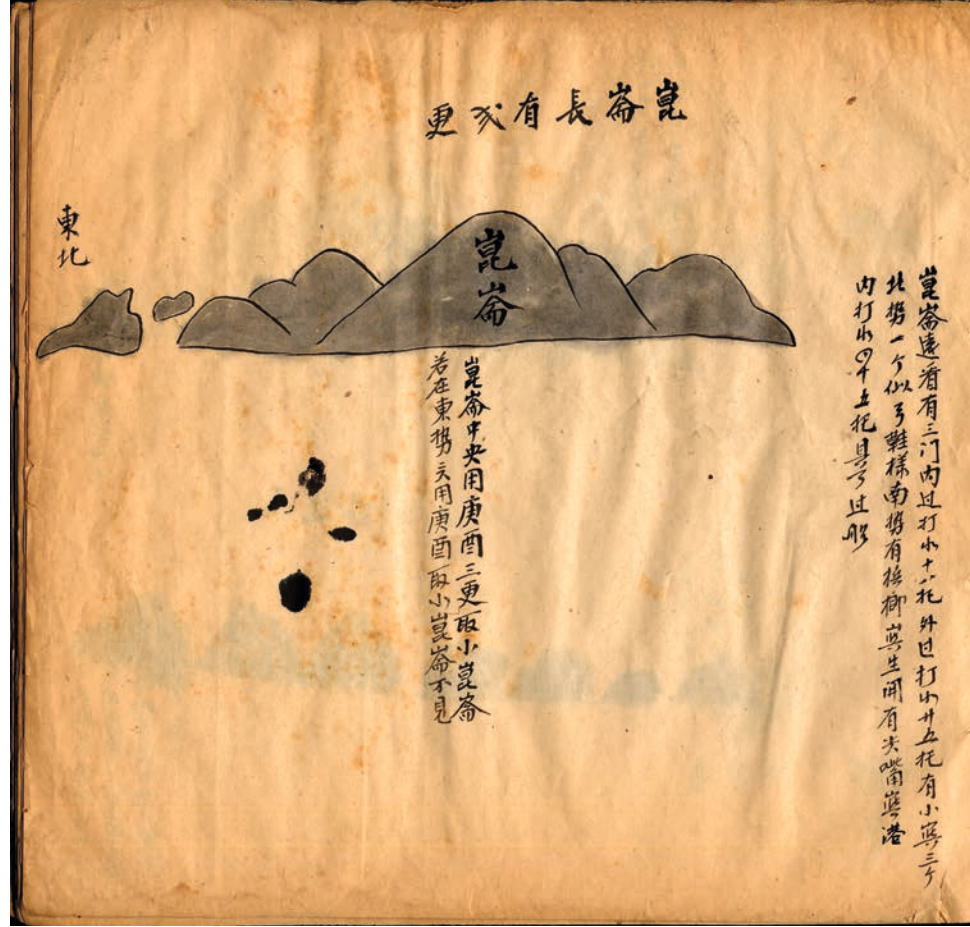 崑崙長有弍更
崑崙遠看有三门内过打水十八托外过打水廿五托有小嶼三个
北势一个似弓鞋樣南势有梹榔嶼生開有尖嘴嶼港
内打水四十五托具可过船
崑崙
崑崙中央用庚酉三更取小崑崙
若在東势亦用庚酉取小崑崙不見
東北